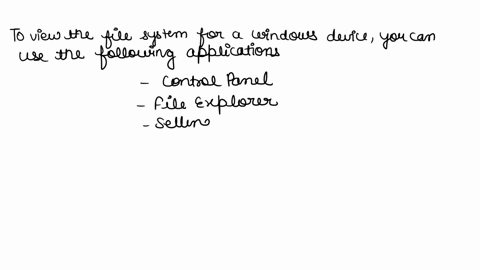 To view the file system for a windows device, you can
use the following applications
- Control Panel
- File Explorer
- Sellin